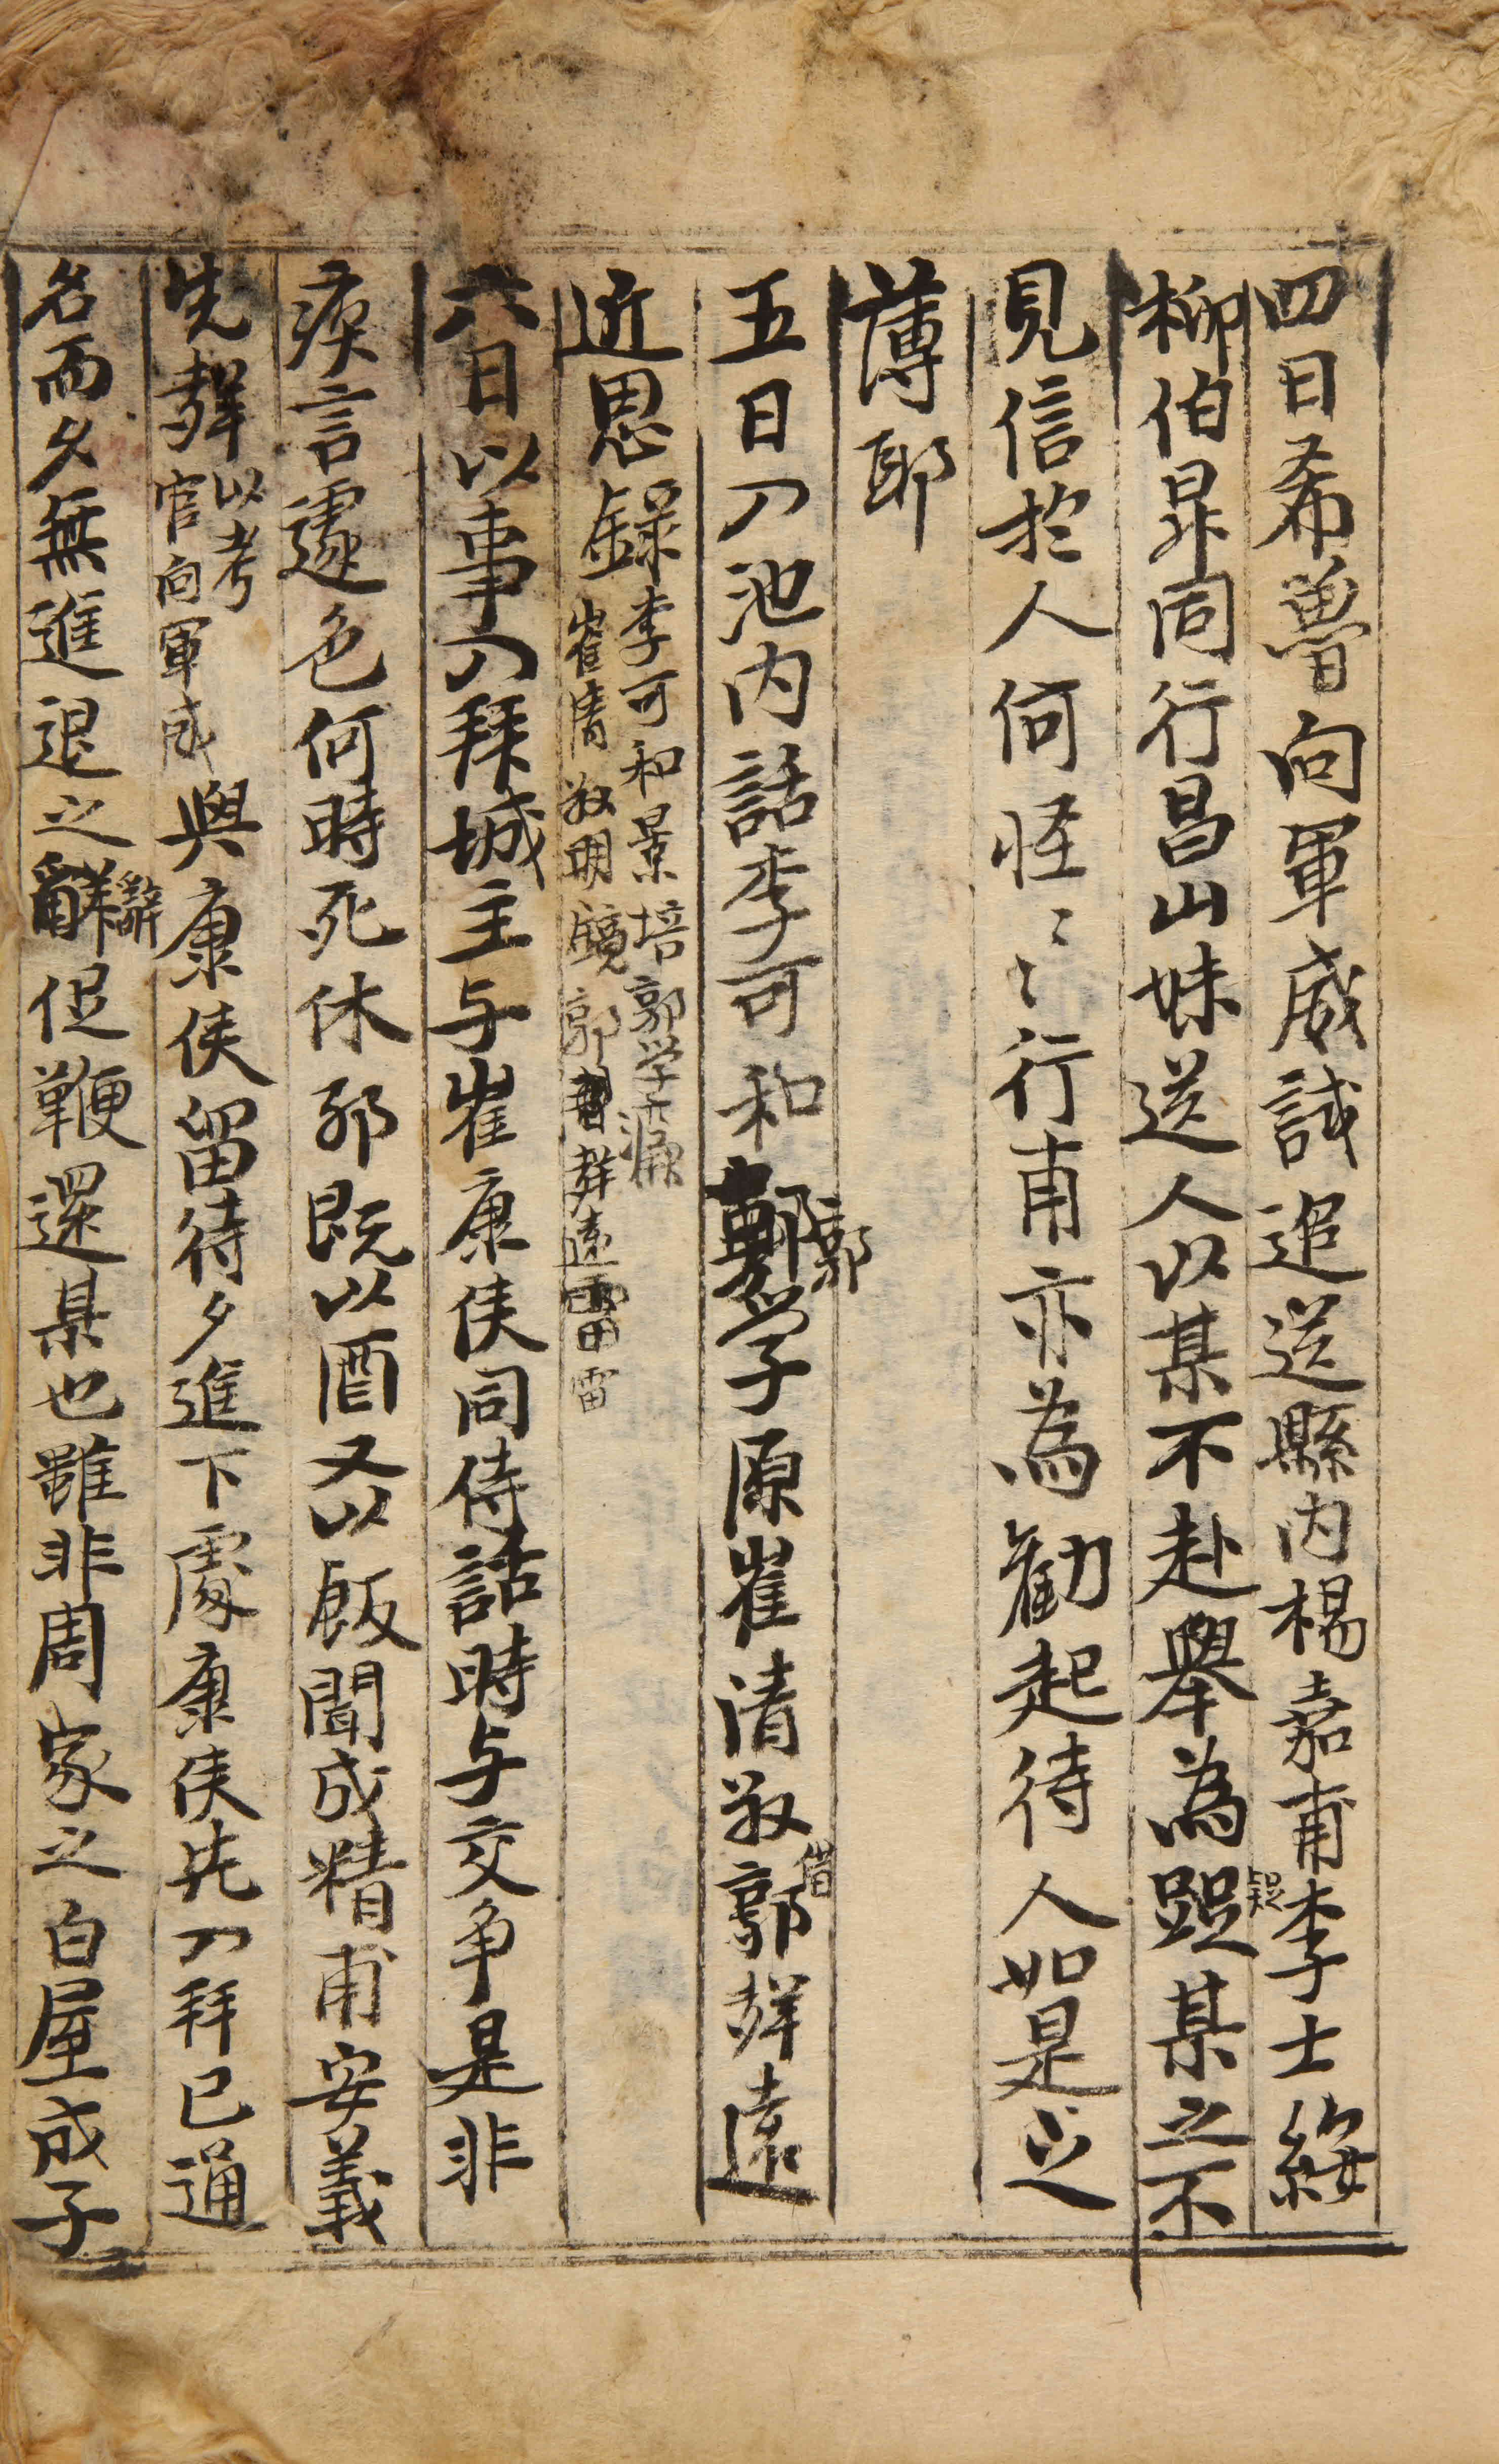 四日希魯向軍威試追送縣內楊嘉甫李士綏
柳伯昇同行昌山妹送人以某不赴舉為誤某之不
見信於人何怪〻〻行甫亦為勸起待人如是之
薄耶
五日入池內話李可和郭學源崔清叔借郭羣遠
近思錄李可和景培郭学源
崔清叔明鏡郭羣遠雷
六日以事入拜城主与崔康侯同侍話時与交争是非
疾言遽色何時死休耶既以酒又以飯聞成精甫安義
先聲以考官向軍威與康侯留待夕進下處康侯先入拜已通
名而久無進退之辭促鞭還某也雖非周家之白屋成子